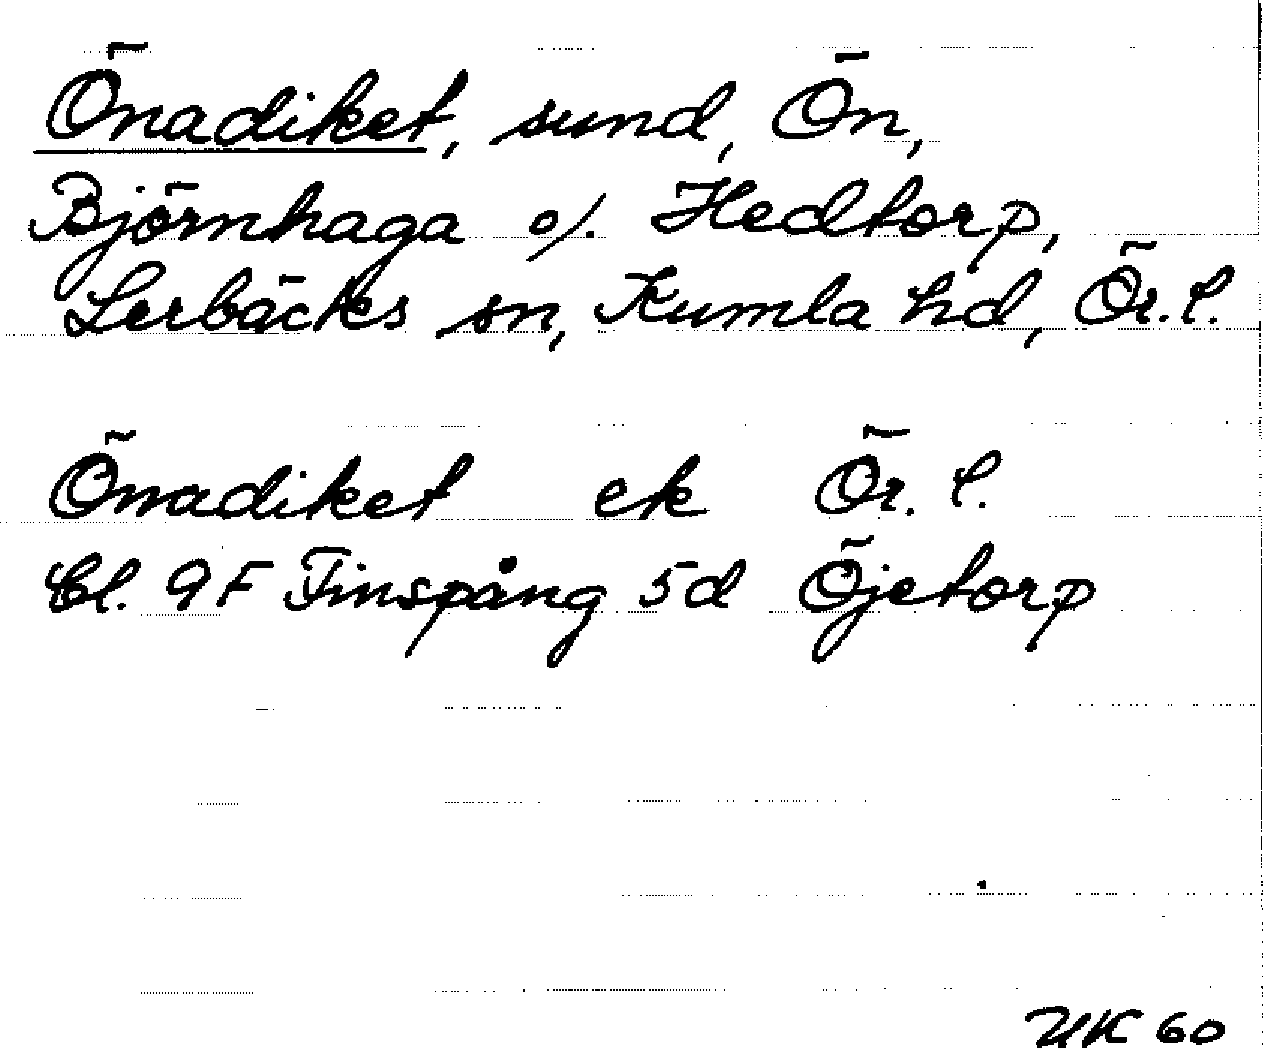 Önadiket, sund, Ön,
Björnhaga o/. Hedtorp,
Lerbäcks sn, Kumla hd, Ör. l.
Önadiket ek Ör. l.
Bl. 9F Finspång 5d Öjetorp
UK 60